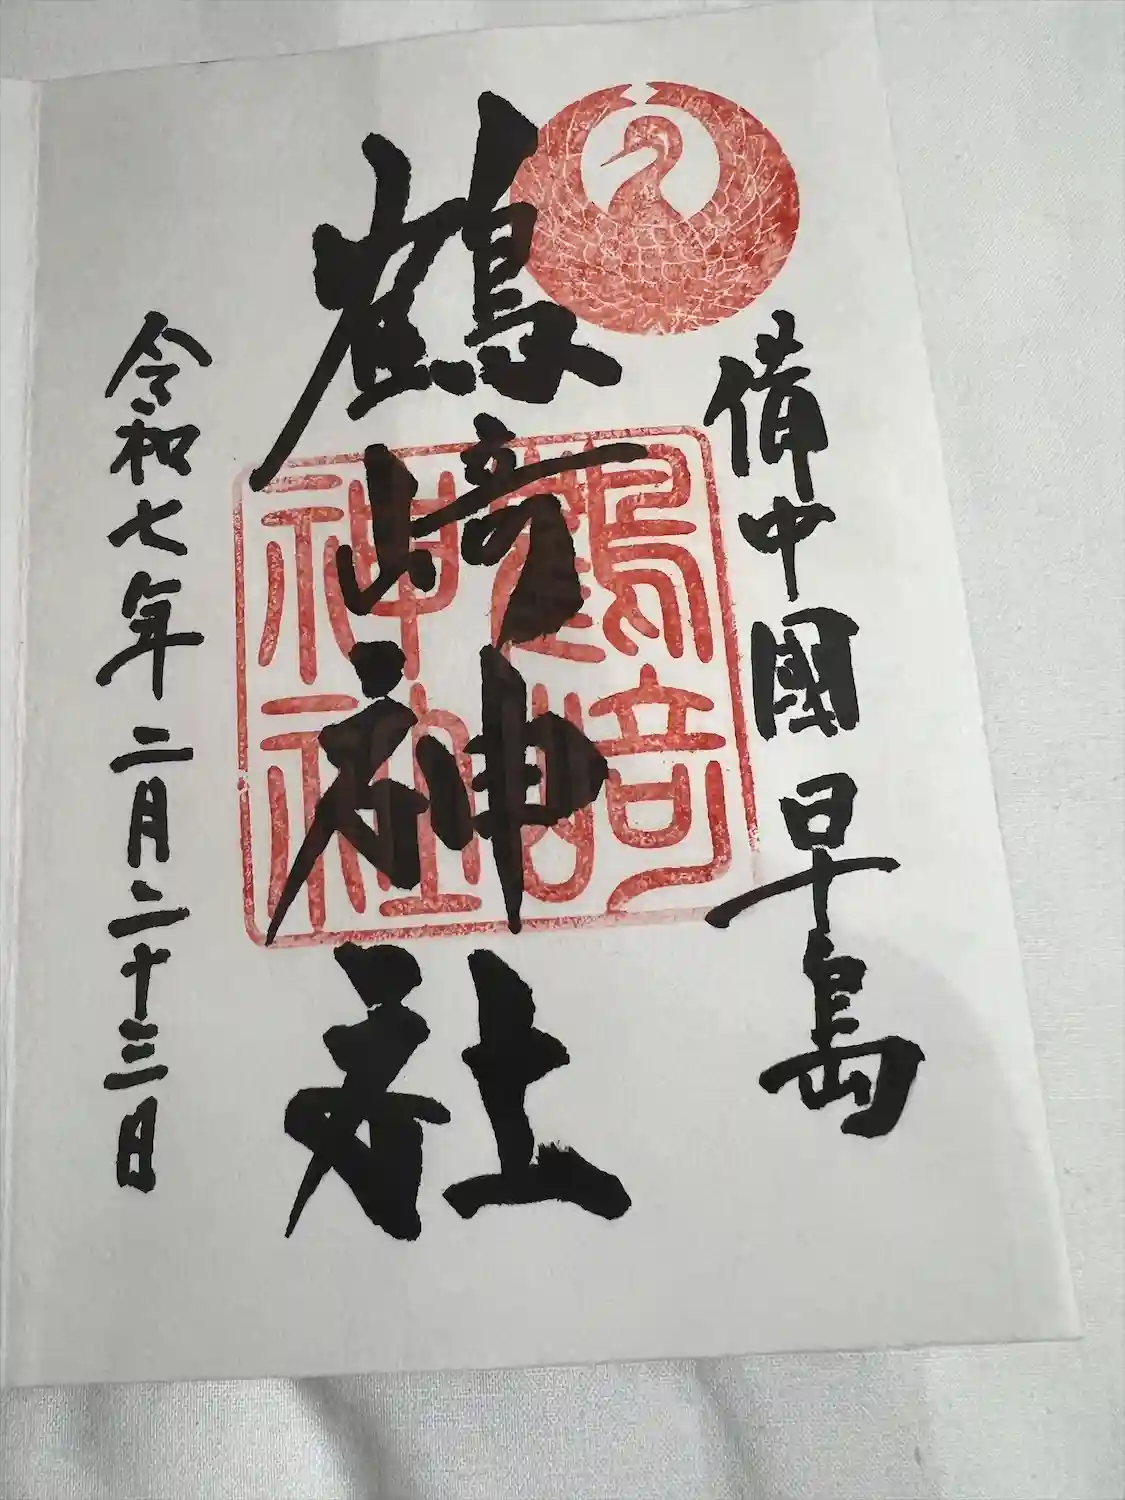 備中國早島
鶴﨑神社
鶴﨑
神社
令和七年二月二十三日